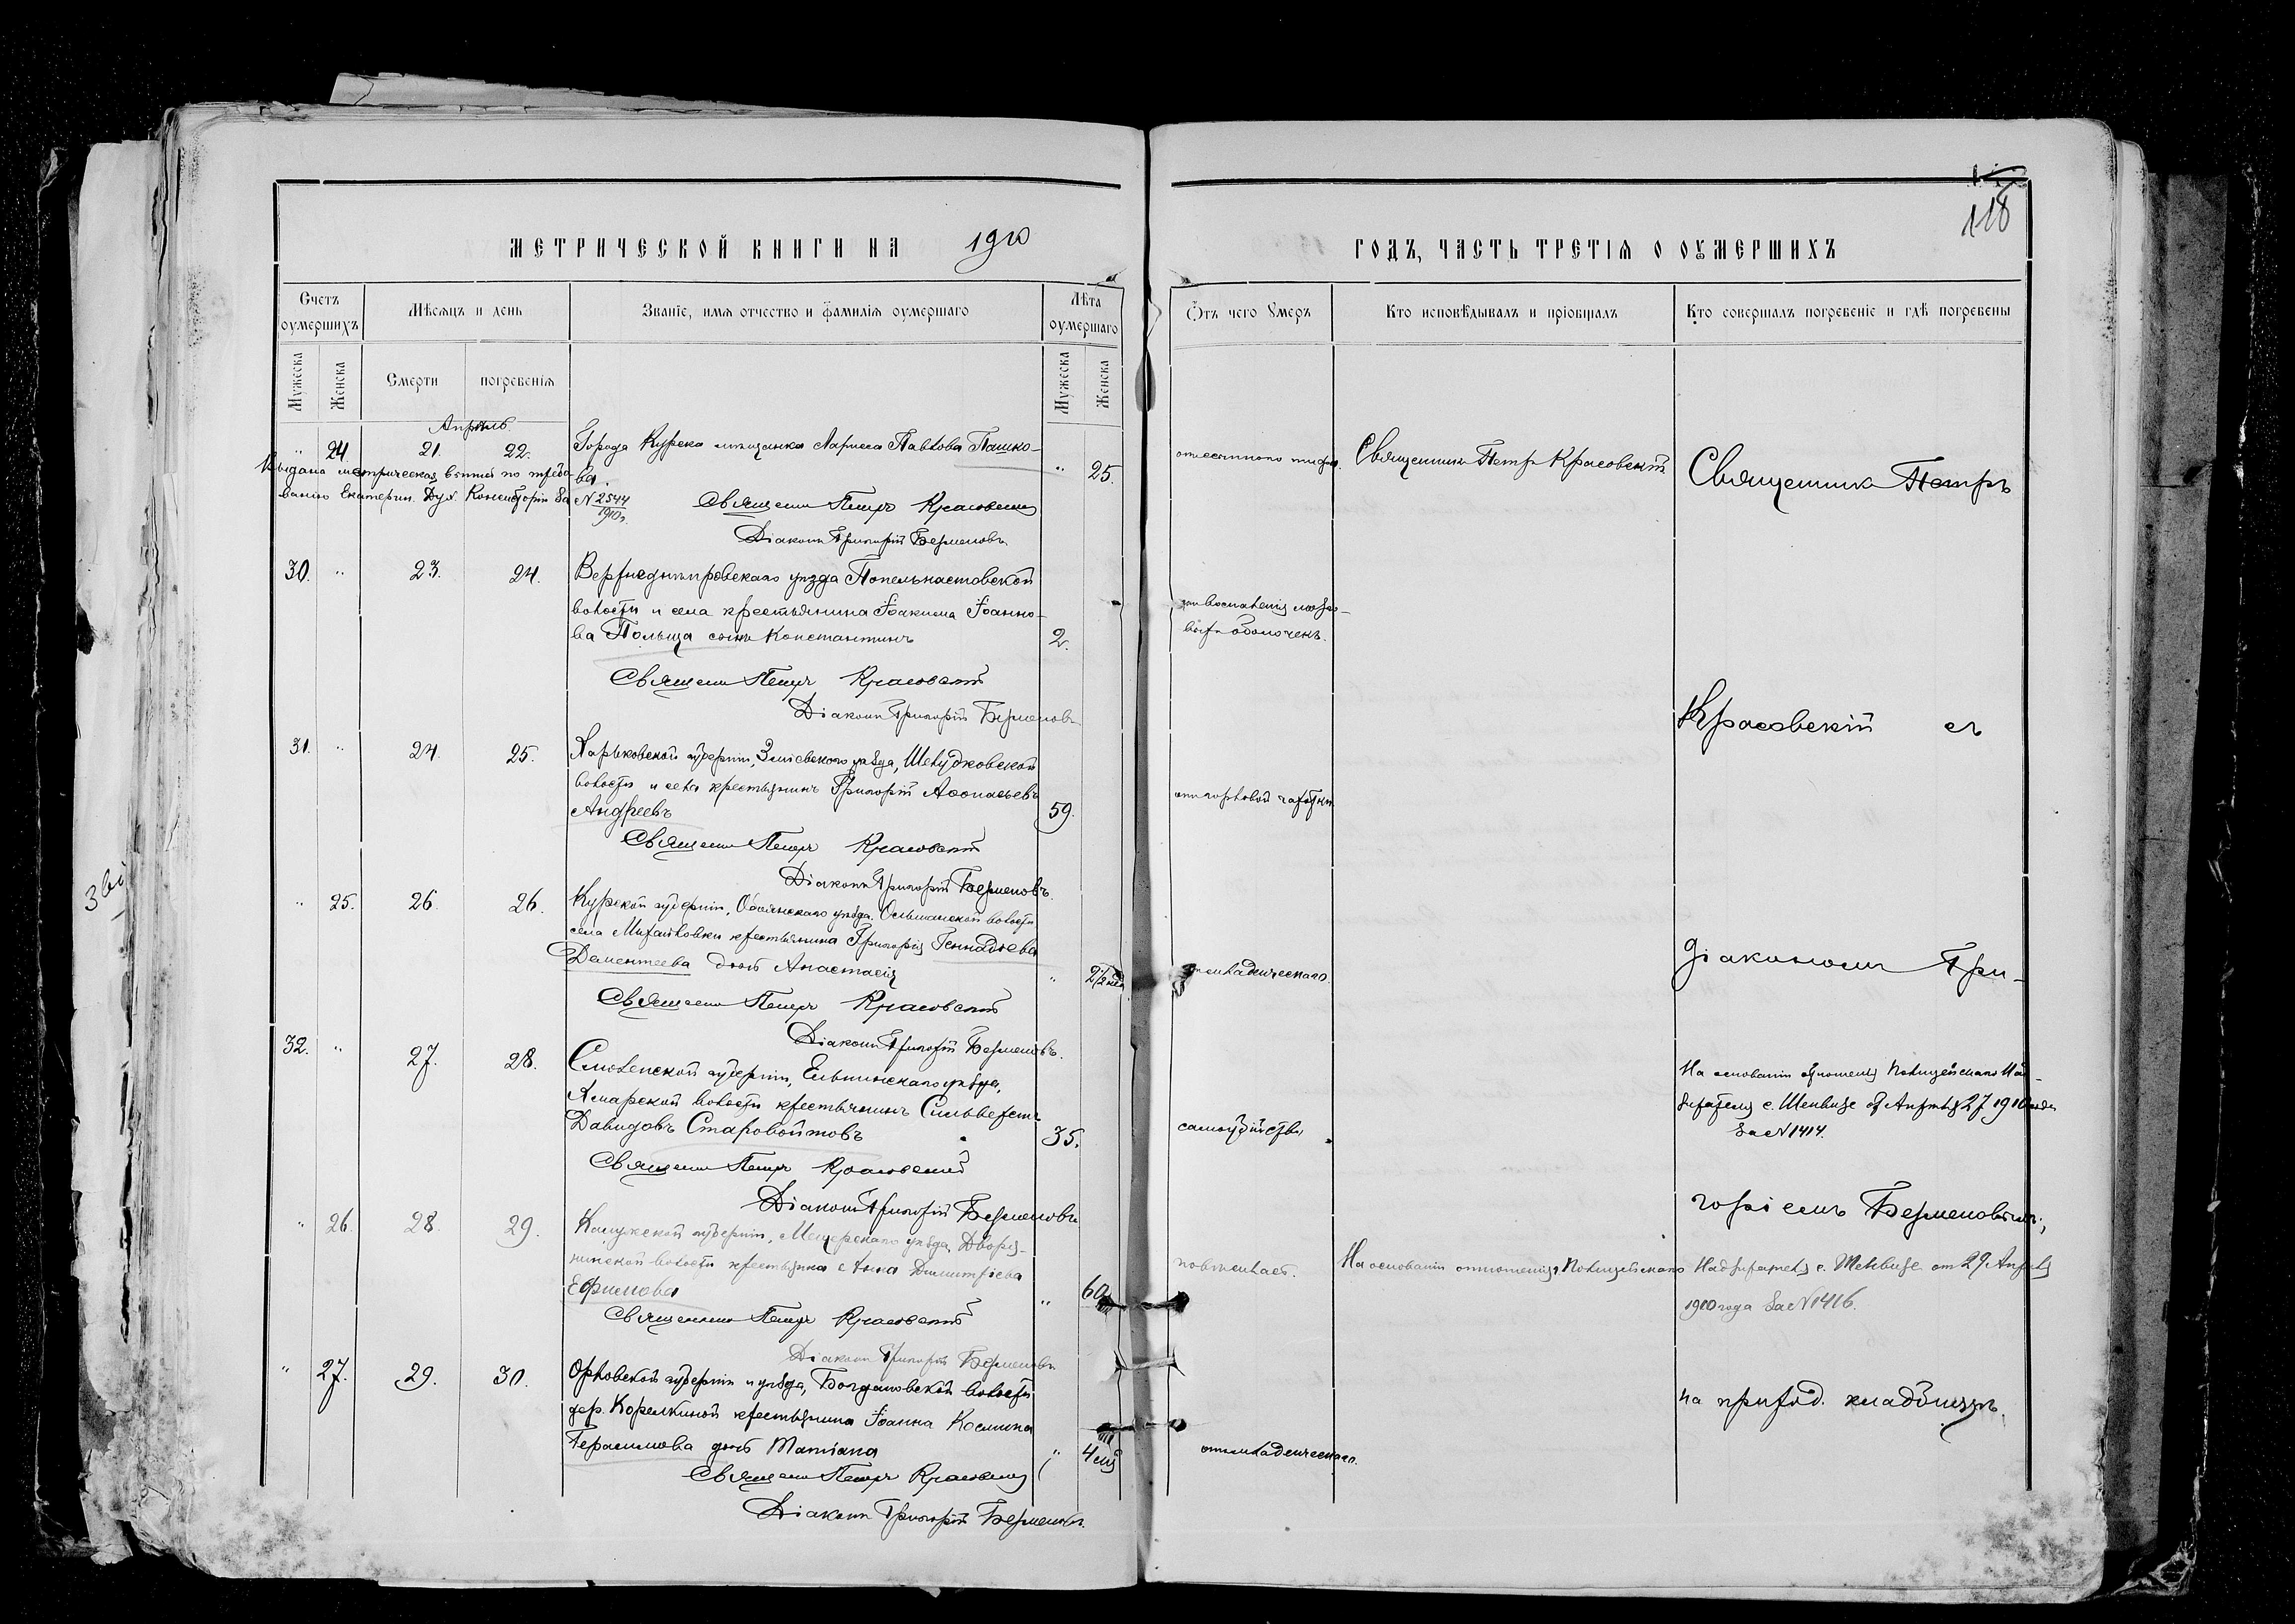 118
МЕТРИЧЕСКОЙ КНИГИ НА 1910
ГОДЪ, ЧАСТЬ ТРЕТІЯ О ОУМЕРШИХЪ
Счетъ оумершихъ
Мѣсяцъ и день
Званіе, имя отчество и фамилія оумершаго
Лѣта оумершаго
Мужеска
Женска
Смерти
погребенія
Мужеска
Женска
Отъ чего умеръ
Кто исповѣдывалъ и пріобщалъ
Кто совершалъ погребеніе и гдѣ погребены
Апрѣль
" 24 21. 22. Города Курска мѣщанка Лариса Павлова Пашко-
ва. " 25.
Выдана метрическая выпись по требо-
ванію Екатерин. Дух. Консисторіи за № 2544
1910 г.
Священникъ Петръ Красовскій
Діаконъ Григорій Берменовъ
30. " 23. 24. Верхнеднѣпровскаго уѣзда Попельнастовской
волости и села крестьянина Іоакима Іоанно-
ва Польща сынъ Константинъ 2.
Священникъ Петръ Красовскій
Діаконъ Григорій Берменовъ
31. " 24. 25. Харьковской губерніи, Зміевскаго уѣзда, Шелудковской
волости и села крестьянинъ Григорій Аѳонасьевъ
Андреевъ 59.
Священникъ Петръ Красовскій
Діаконъ Григорій Берменовъ.
" 25. 26. 26. Курской губерніи, Обоянскаго уѣзда. Ольшанской волости
села Михайловки крестьянина Григорія Геннадьева
Дементеева дочь Анастасія " 2 1/2 нед
Священникъ Петръ Красовскій
Діаконъ Григорій Берменовъ.
32. " 27. 28. Смоленской губерніи, Ельнинскаго уѣзда,
волости крестьянинъ Сильвестръ
Давидовъ Старовойтовъ 35.
Священникъ Петръ Красовскій
Діаконъ Григорій Берменовъ
" 26. 28. 29. Калужской губерніи, уѣзда,
волости крестьянка Анна Димитріева
Ефимова " 60
Священникъ Петръ Красовскій
Діаконъ Григорій Берменовъ
" 27. 29. 30. Орловской губерніи и уѣзда, Богдановской волости
дер. Корелкиной крестьянина Іоанна Космина
Герасимова дочь Татіана " 4 мц
Священникъ Петръ Красовскій
Діаконъ Григорій Берменовъ.
Священникъ Петръ Красовскій
Священникъ Петръ
отъ воспаленія мозго-
выхъ оболочекъ.
Красовскій съ
отъ горловой чахотки
отъ младенческаго.
діакономъ Гри-
На основаніи отношенія Полицейскаго Над-
зирателя с. Шенвизе отъ Апрѣля 27 1910 года
за № 1414.
самоубійства
горіемъ Берменовымъ,
На основаніи отношенія, Полицейскаго Надзирателя с. Шенвизе от 29 Апрѣля
1910 года за № 1416.
на приход. кладбищѣ.
отъ младенческаго.